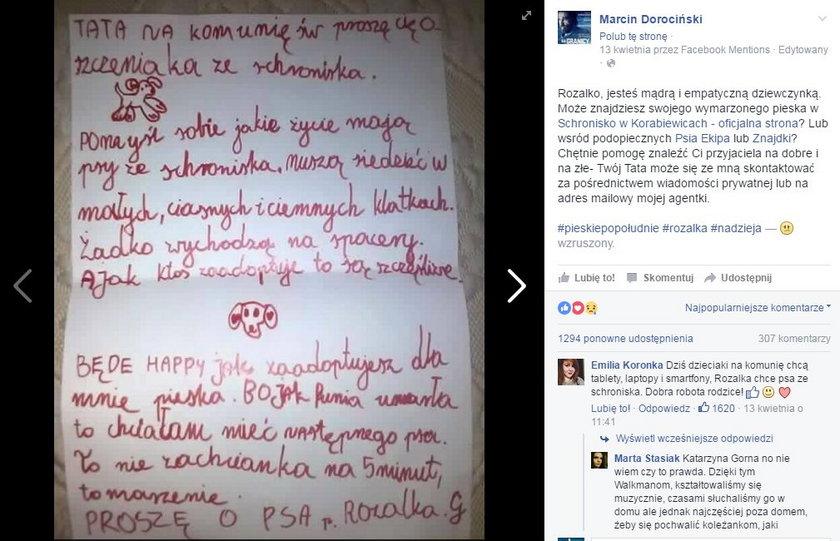 TATA NA KOMUNIĘ ŚW proszę cię o
szczeniaka ze schroniska.
POMYŚL sobie jakie życie mają
psy ze schroniska. Muszą siedzieć w
małych, ciasnych i ciemnych klatkach.
Żadko wychodzą na spacery.
A jak ktoś zaadoptuje to są szczęśliwe.
BĘDE HAPPY jak zaadoptujesz dla
mnie pieska. BO jak Punia umarła
to chciałam mieć następnego psa.
To nie zachcianka na 5 minut,
to marzenie.
PROSZĘ O PSA p. Rozalka. G
NA GRANICY
Marcin Dorociński
Polub tę stronę ·
13 kwietnia przez Facebook Mentions · Edytowany
·
Rozalko, jesteś mądrą i empatyczną dziewczynką.
Może znajdziesz swojego wymarzonego pieska w
Schronisko w Korabiewicach - oficjalna strona? Lub
wsród podopiecznych Psia Ekipa lub Znajdki?
Chętnie pomogę znaleźć Ci przyjaciela na dobre i
na złe- Twój Tata może się ze mną skontaktować
za pośrednictwem wiadomości prywatnej lub na
adres mailowy mojej agentki.
#pieskiepopołudnie #rozalka #nadzieja — 🙂
wzruszony.
Lubię to! Skomentuj Udostępnij
Najpopularniejsze komentarze
1294 ponowne udostępnienia 307 komentarzy
Emilia Koronka Dziś dzieciaki na komunię chcą
tablety, laptopy i smartfony, Rozalka chce psa ze
schroniska. Dobra robota rodzice! 👍 🙂 ❤
Lubię to! · Odpowiedz · 1620 · 13 kwietnia o
11:41
Wyświetl wcześniejsze odpowiedzi
Marta Stasiak Katarzyna Gorna no nie
wiem czy to prawda. Dzięki tym
Walkmanom, kształtowaliśmy się
muzycznie, czasami słuchaliśmy go w
domu ale jednak najczęściej poza domem,
żeby się pochwalić koleżankom, jaki